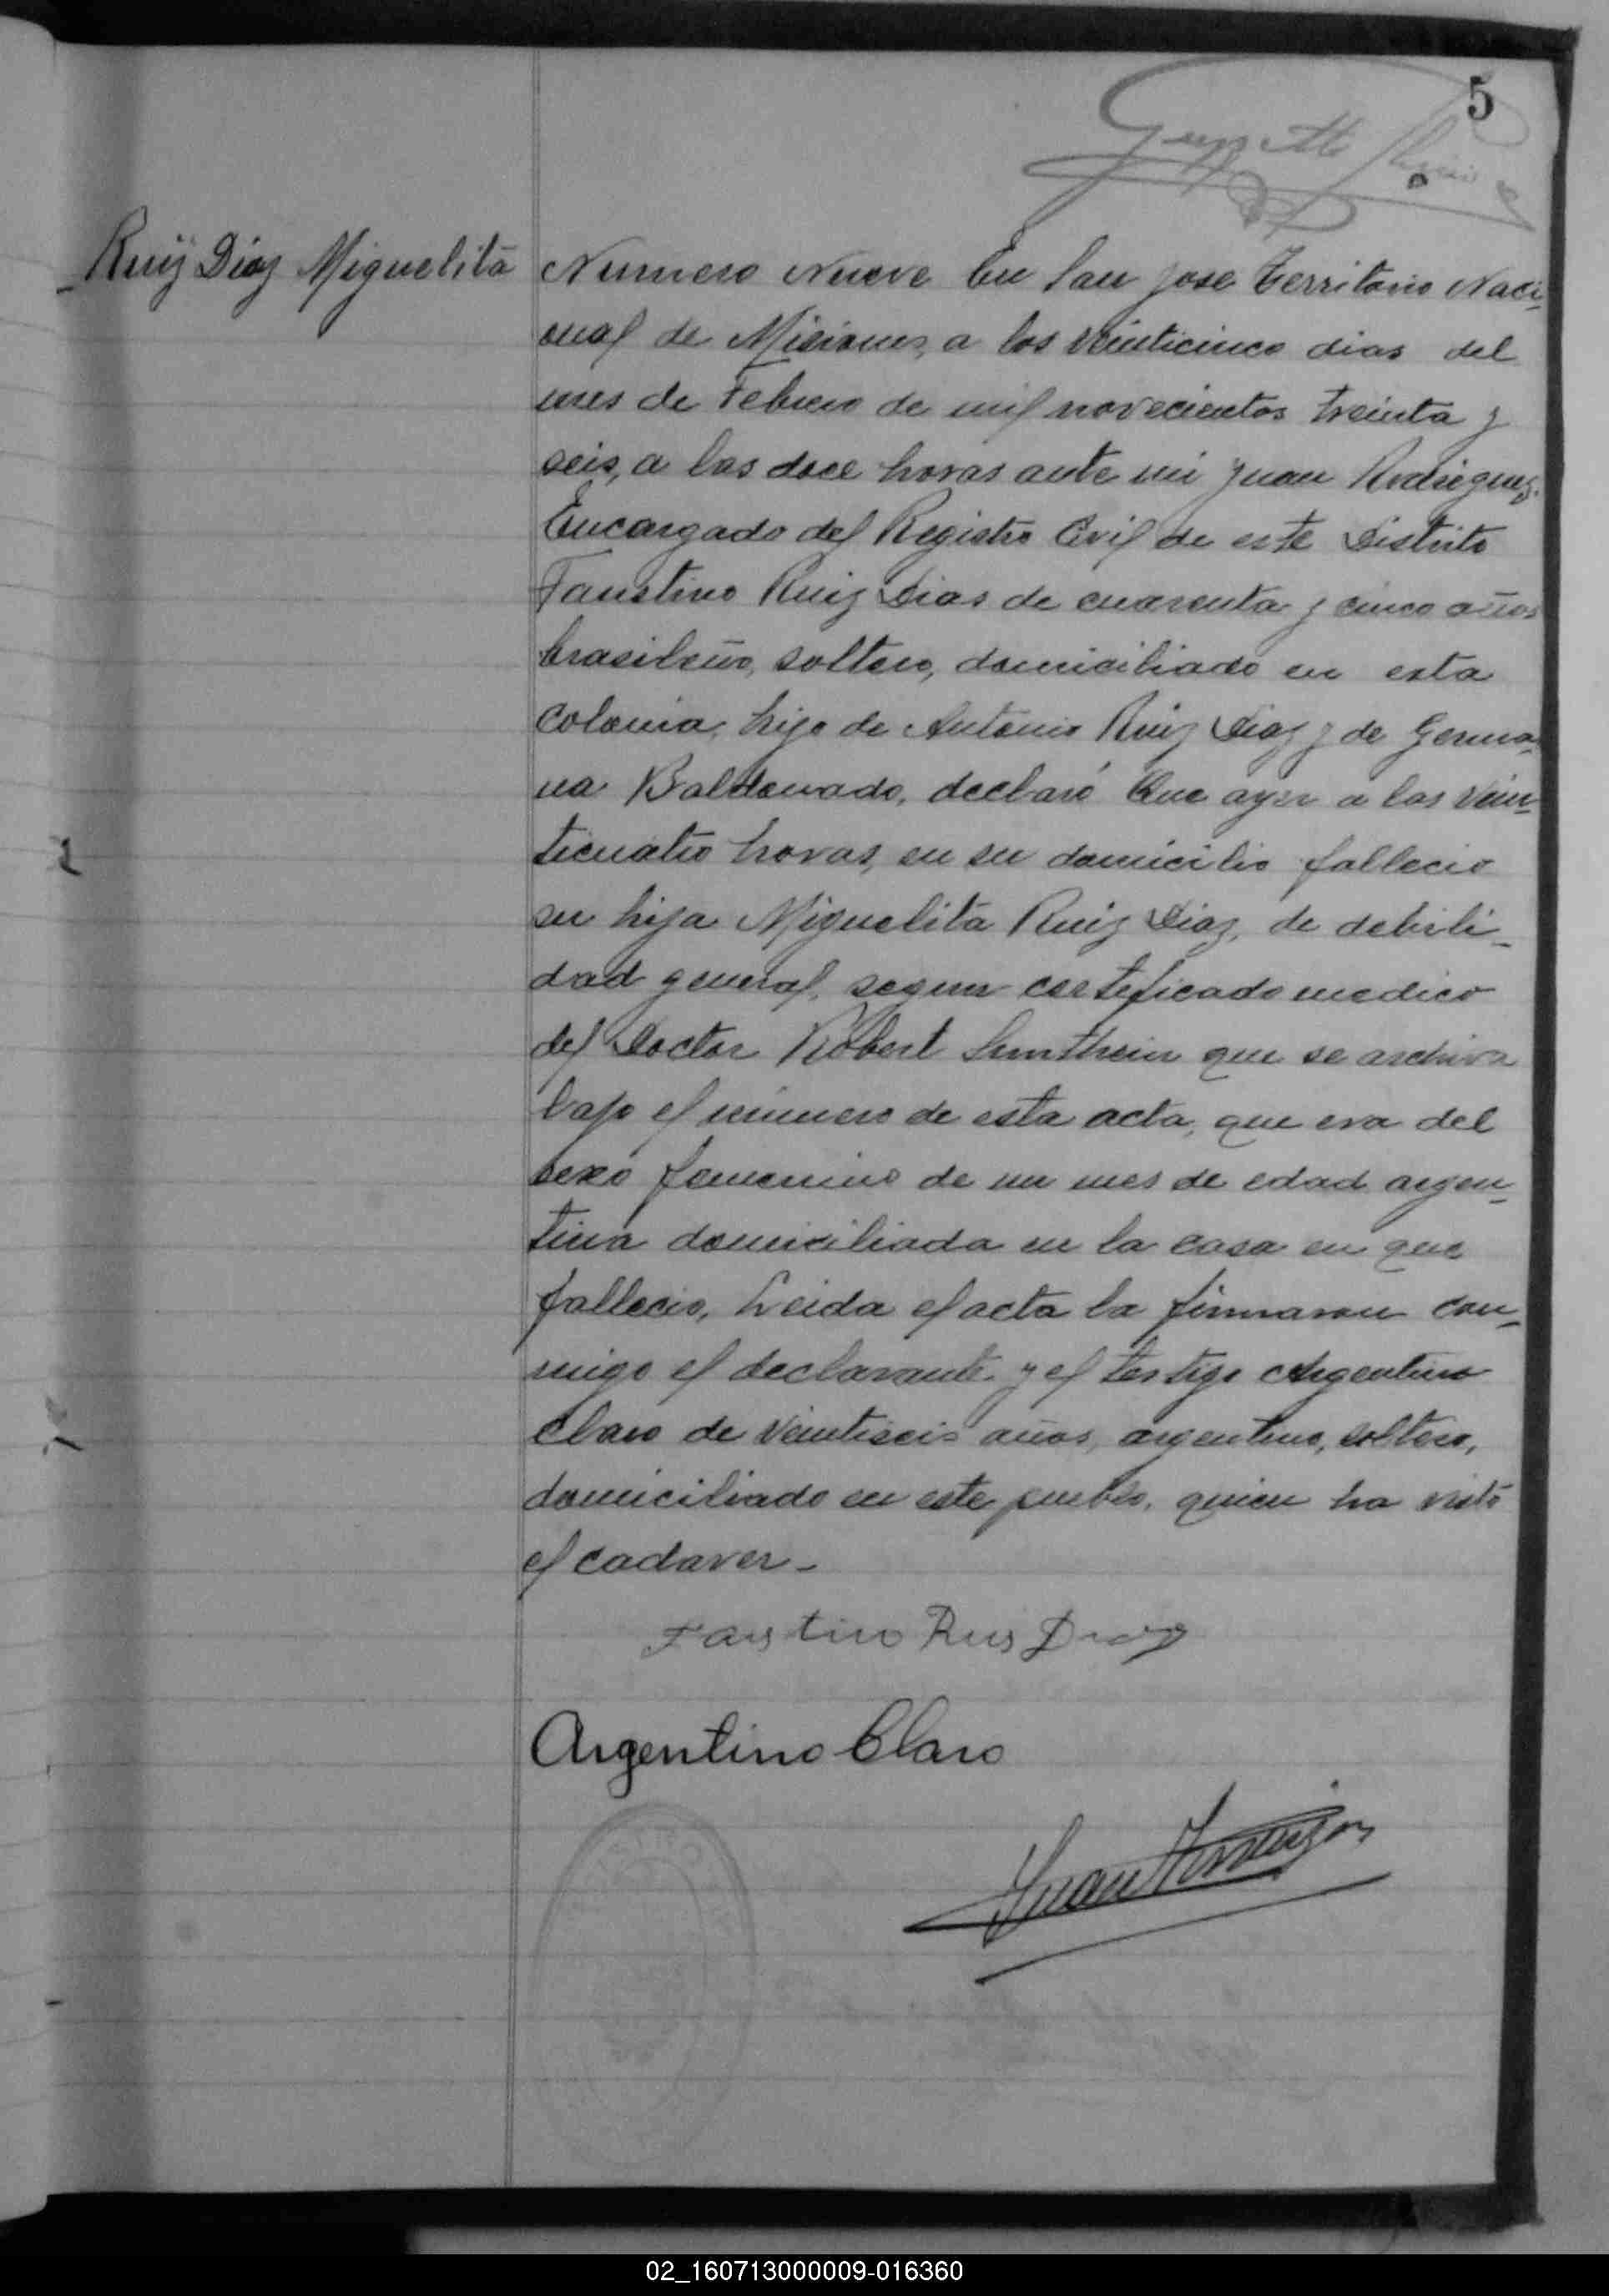 5
Ruiz Diaz Miguelita
Numero Nueve En San Jose Territorio Naci-
onal de Misiones, a los veinticinco dias del
mes de Febrero de mil novecientos treinta y
seis, a las doce horas ante mi Juan Rodriguez.
Encargado del Registro Civil de este Distrito
Faustino Ruiz Dias de cuarenta y cinco años
brasileño, soltero, domiciliado en esta
colonia, hijo de Antonio Ruiz Diaz y de Germa-
na Baldonado, declaró Que ayer a las vein-
ticuatro horas, en su domicilio fallecio
su hija Miguelita Ruiz Diaz, de debili-
dad general, segun certificado medico
del Doctor Robert que se archiva
bajo el número de esta acta, que era del
sexo femenino de un mes de edad argen-
tina domiciliada en la casa en que
fallecio, Leida el acta la firmaron con-
migo el declarante y el testigo Argentino
Claro de veintiseis años, argentino, soltero,
domiciliado en este pueblo, quien ha visto
el cadaver-
Faustino Ruis Diaz
Argentino Claro
Juan
02_160713000009-016360